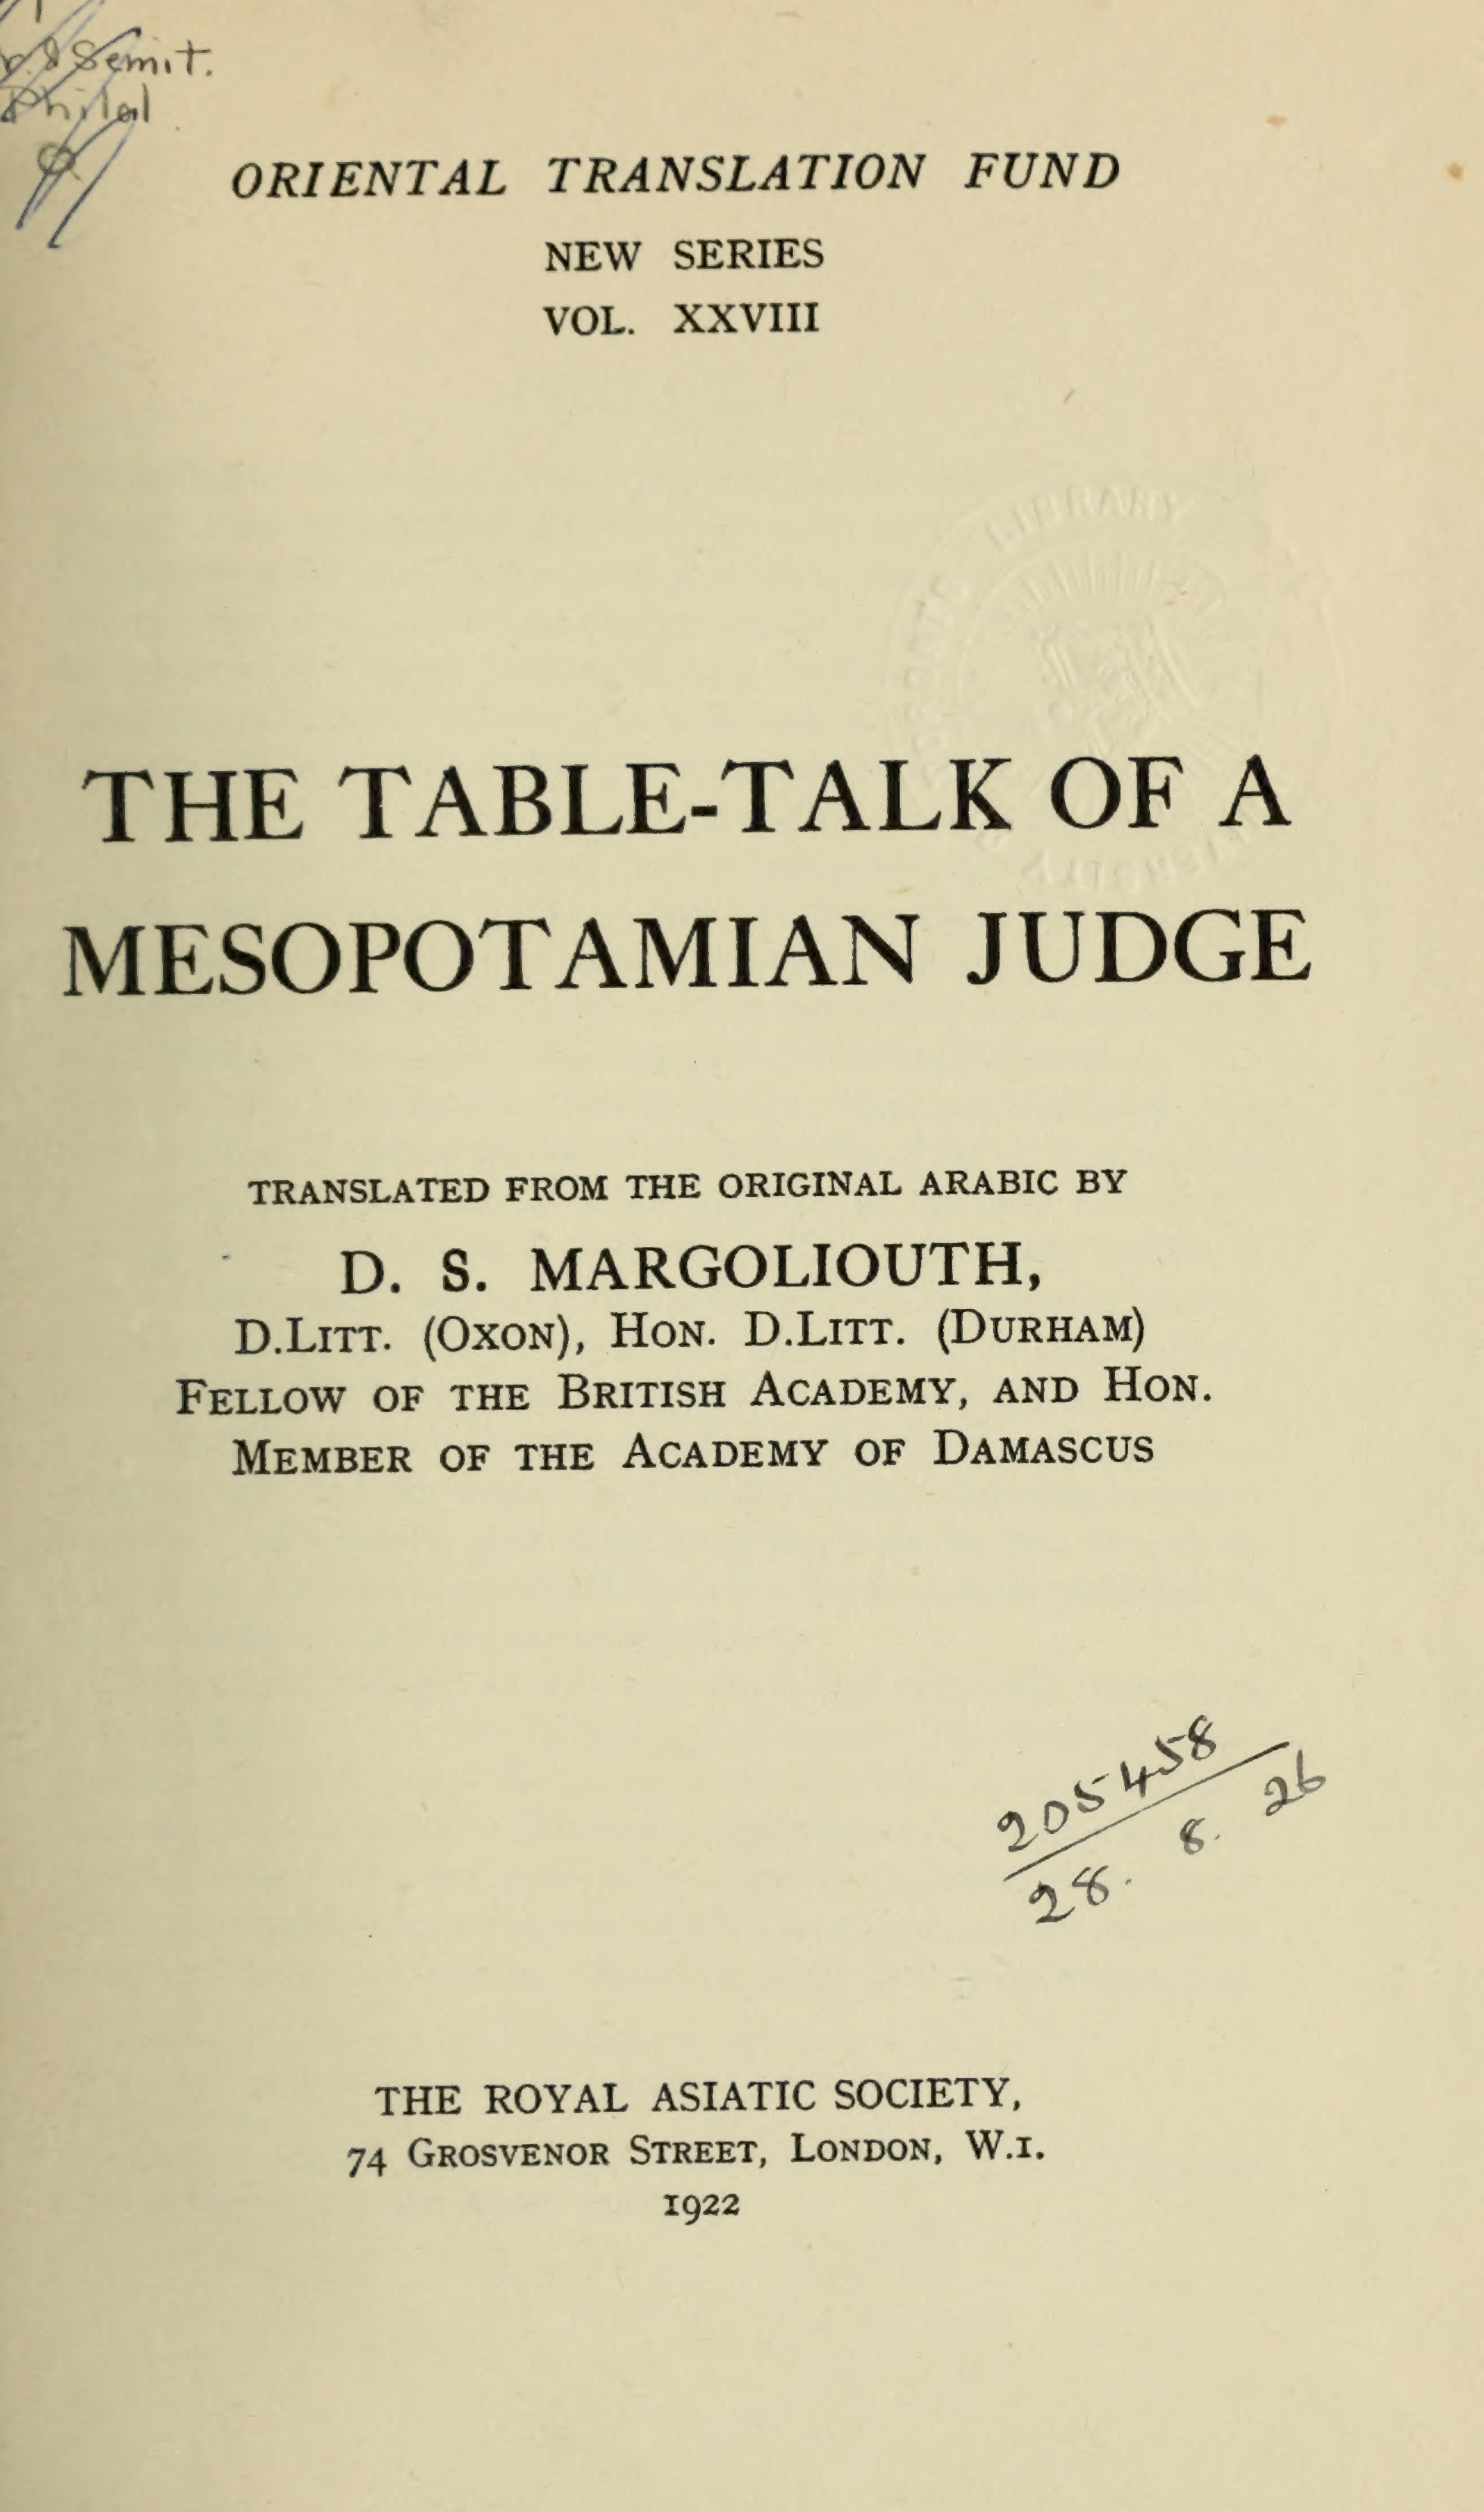 Semit.
Philol
ORIENTAL TRANSLATION FUND
NEW SERIES
VOL. XXVIII
LIBRARY
THE TABLE-TALK OF A
MESOPOTAMIAN JUDGE
TRANSLATED FROM THE ORIGINAL ARABIC BY
D. S. MARGOLIOUTH,
D.LITT. (OXON), HON. D.LITT. (DURHAM)
FELLOW OF THE BRITISH ACADEMY, AND HON.
MEMBER OF THE ACADEMY OF DAMASCUS
205458
28. 8. 26
THE ROYAL ASIATIC SOCIETY,
74 GROSVENOR STREET, LONDON, W.1.
1922